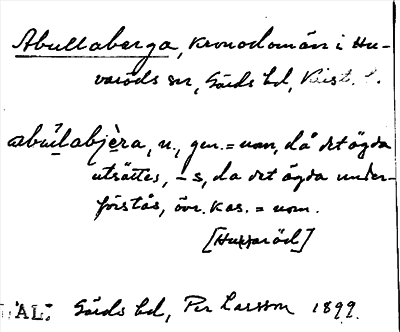 Abullaberga, kronodomän i Hu-
varöds sn, Gärds hd, Krist. l.
abúlabjèra, n., gen. = nom, då det ägda
utsättes, -s, då det ägda under-
förstås, övr. kas. = nom.
[Huvaröd]
AL: Gärds hd, Per Larsson 1899.